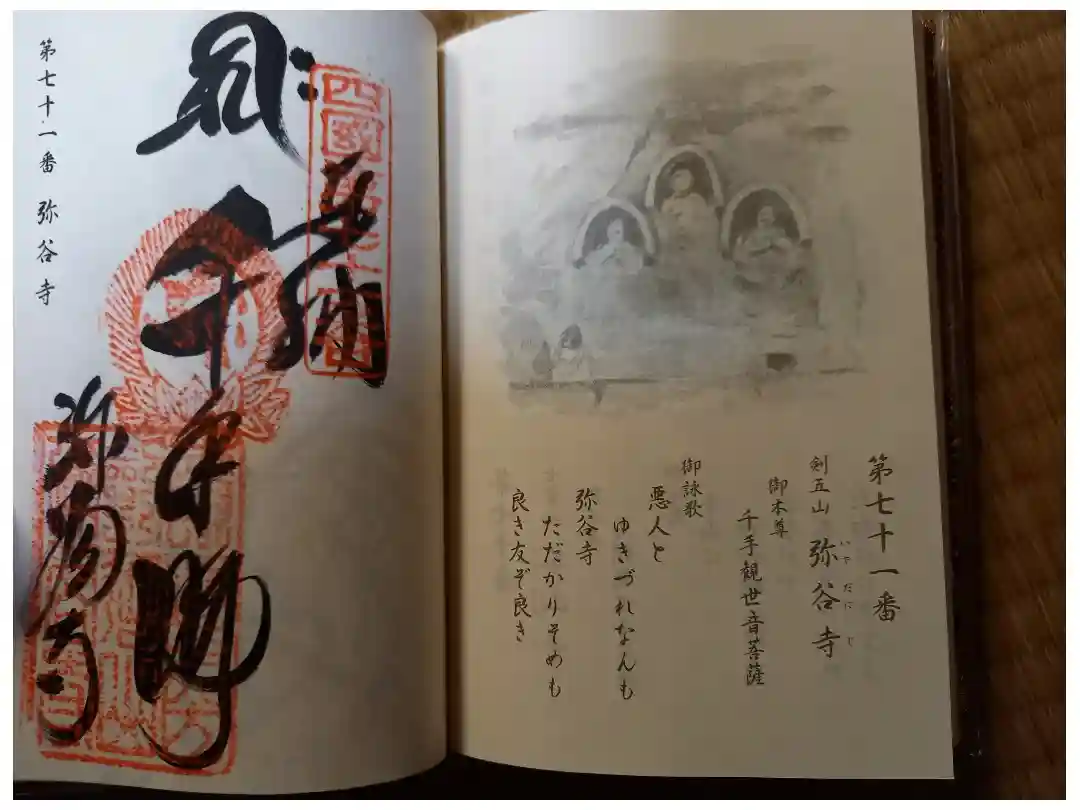 第七十一番
剣五山 弥谷寺
いやだにじ
御本尊
千手観世音菩薩
御詠歌
悪人と
ゆきづれなんも
弥谷寺
ただかりそめも
良き友ぞ良き
四國第七十一番
奉納
千手
弥谷寺
第七十一番 弥谷寺